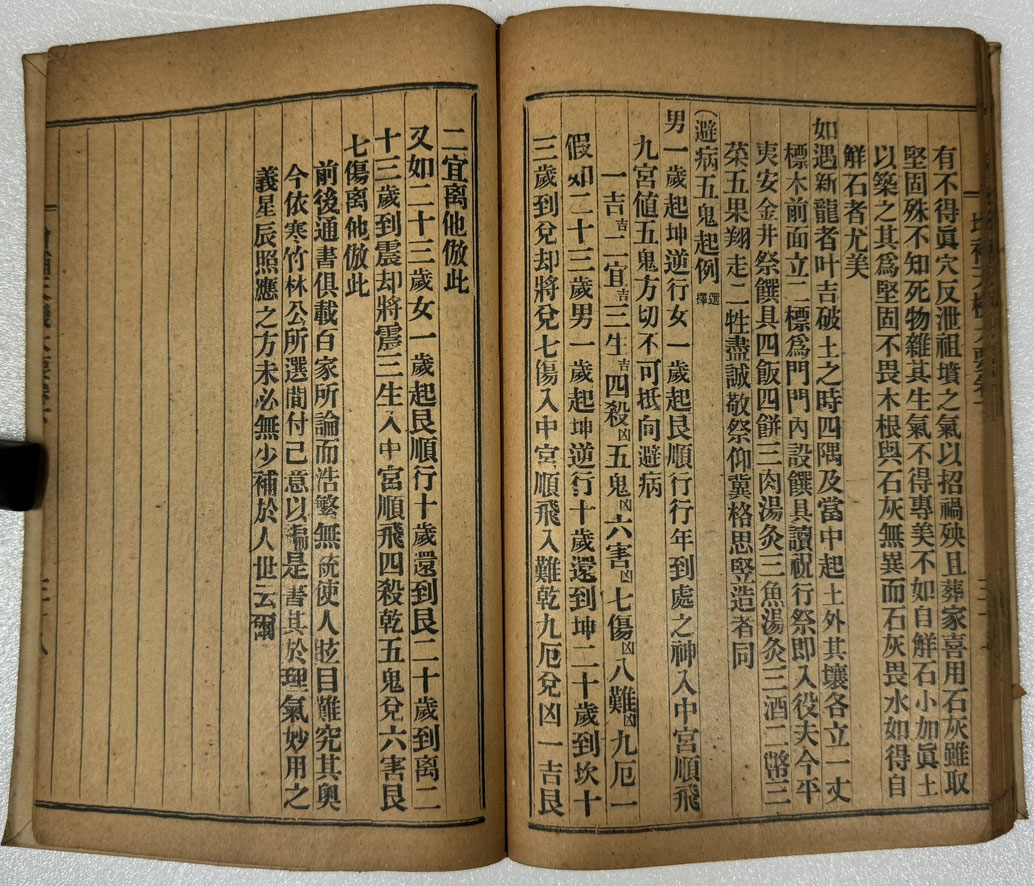 有不得眞穴反泄祖墳之氣以招禍殃且葬家喜用石灰雖取
堅固殊不知死物雜其生氣不得專美不如自鮮石小加眞土
以築之其爲堅固不畏木根與石灰無異而石灰畏水如得自
鮮石者尤美
如遇新龍者叶吉破土之時四隅及當中起土外其壤各立一丈
標木前面立二標爲門門內設饌具讀祝行祭即入役夫今平
夷安金井祭饌具四飯四餅三肉湯灸三魚湯灸三酒二幣三
菜五果翔走二牲盡誠敬祭仰冀格思竪造者同
避病五鬼起例 選擇
男一歲起坤逆行女一歲起艮順行行年到處之神入中宮順飛
九宮値五鬼方切不可抵向避病
一吉吉二宜吉三生吉四殺凶五鬼凶六害凶七傷凶八難凶九厄一
假如二十三歲男一歲起坤逆行十歲還到坤二十歲到坎十
三歲到兌却將兌七傷入中宮順飛入難乾九厄兌凶一吉艮
二宜离他倣此
又如二十三歲女一歲起艮順行十歲還到艮二十歲到离二
十三歲到震却將震三生入中宮順飛四殺乾五鬼兌六害艮
七傷离他倣此
前後通書俱載百家所論而浩繁無統使人眩目難究其奧
今依寒竹林公所選間付己意以編是書其於理氣妙用之
義星辰照應之方未必無少補於人世云爾